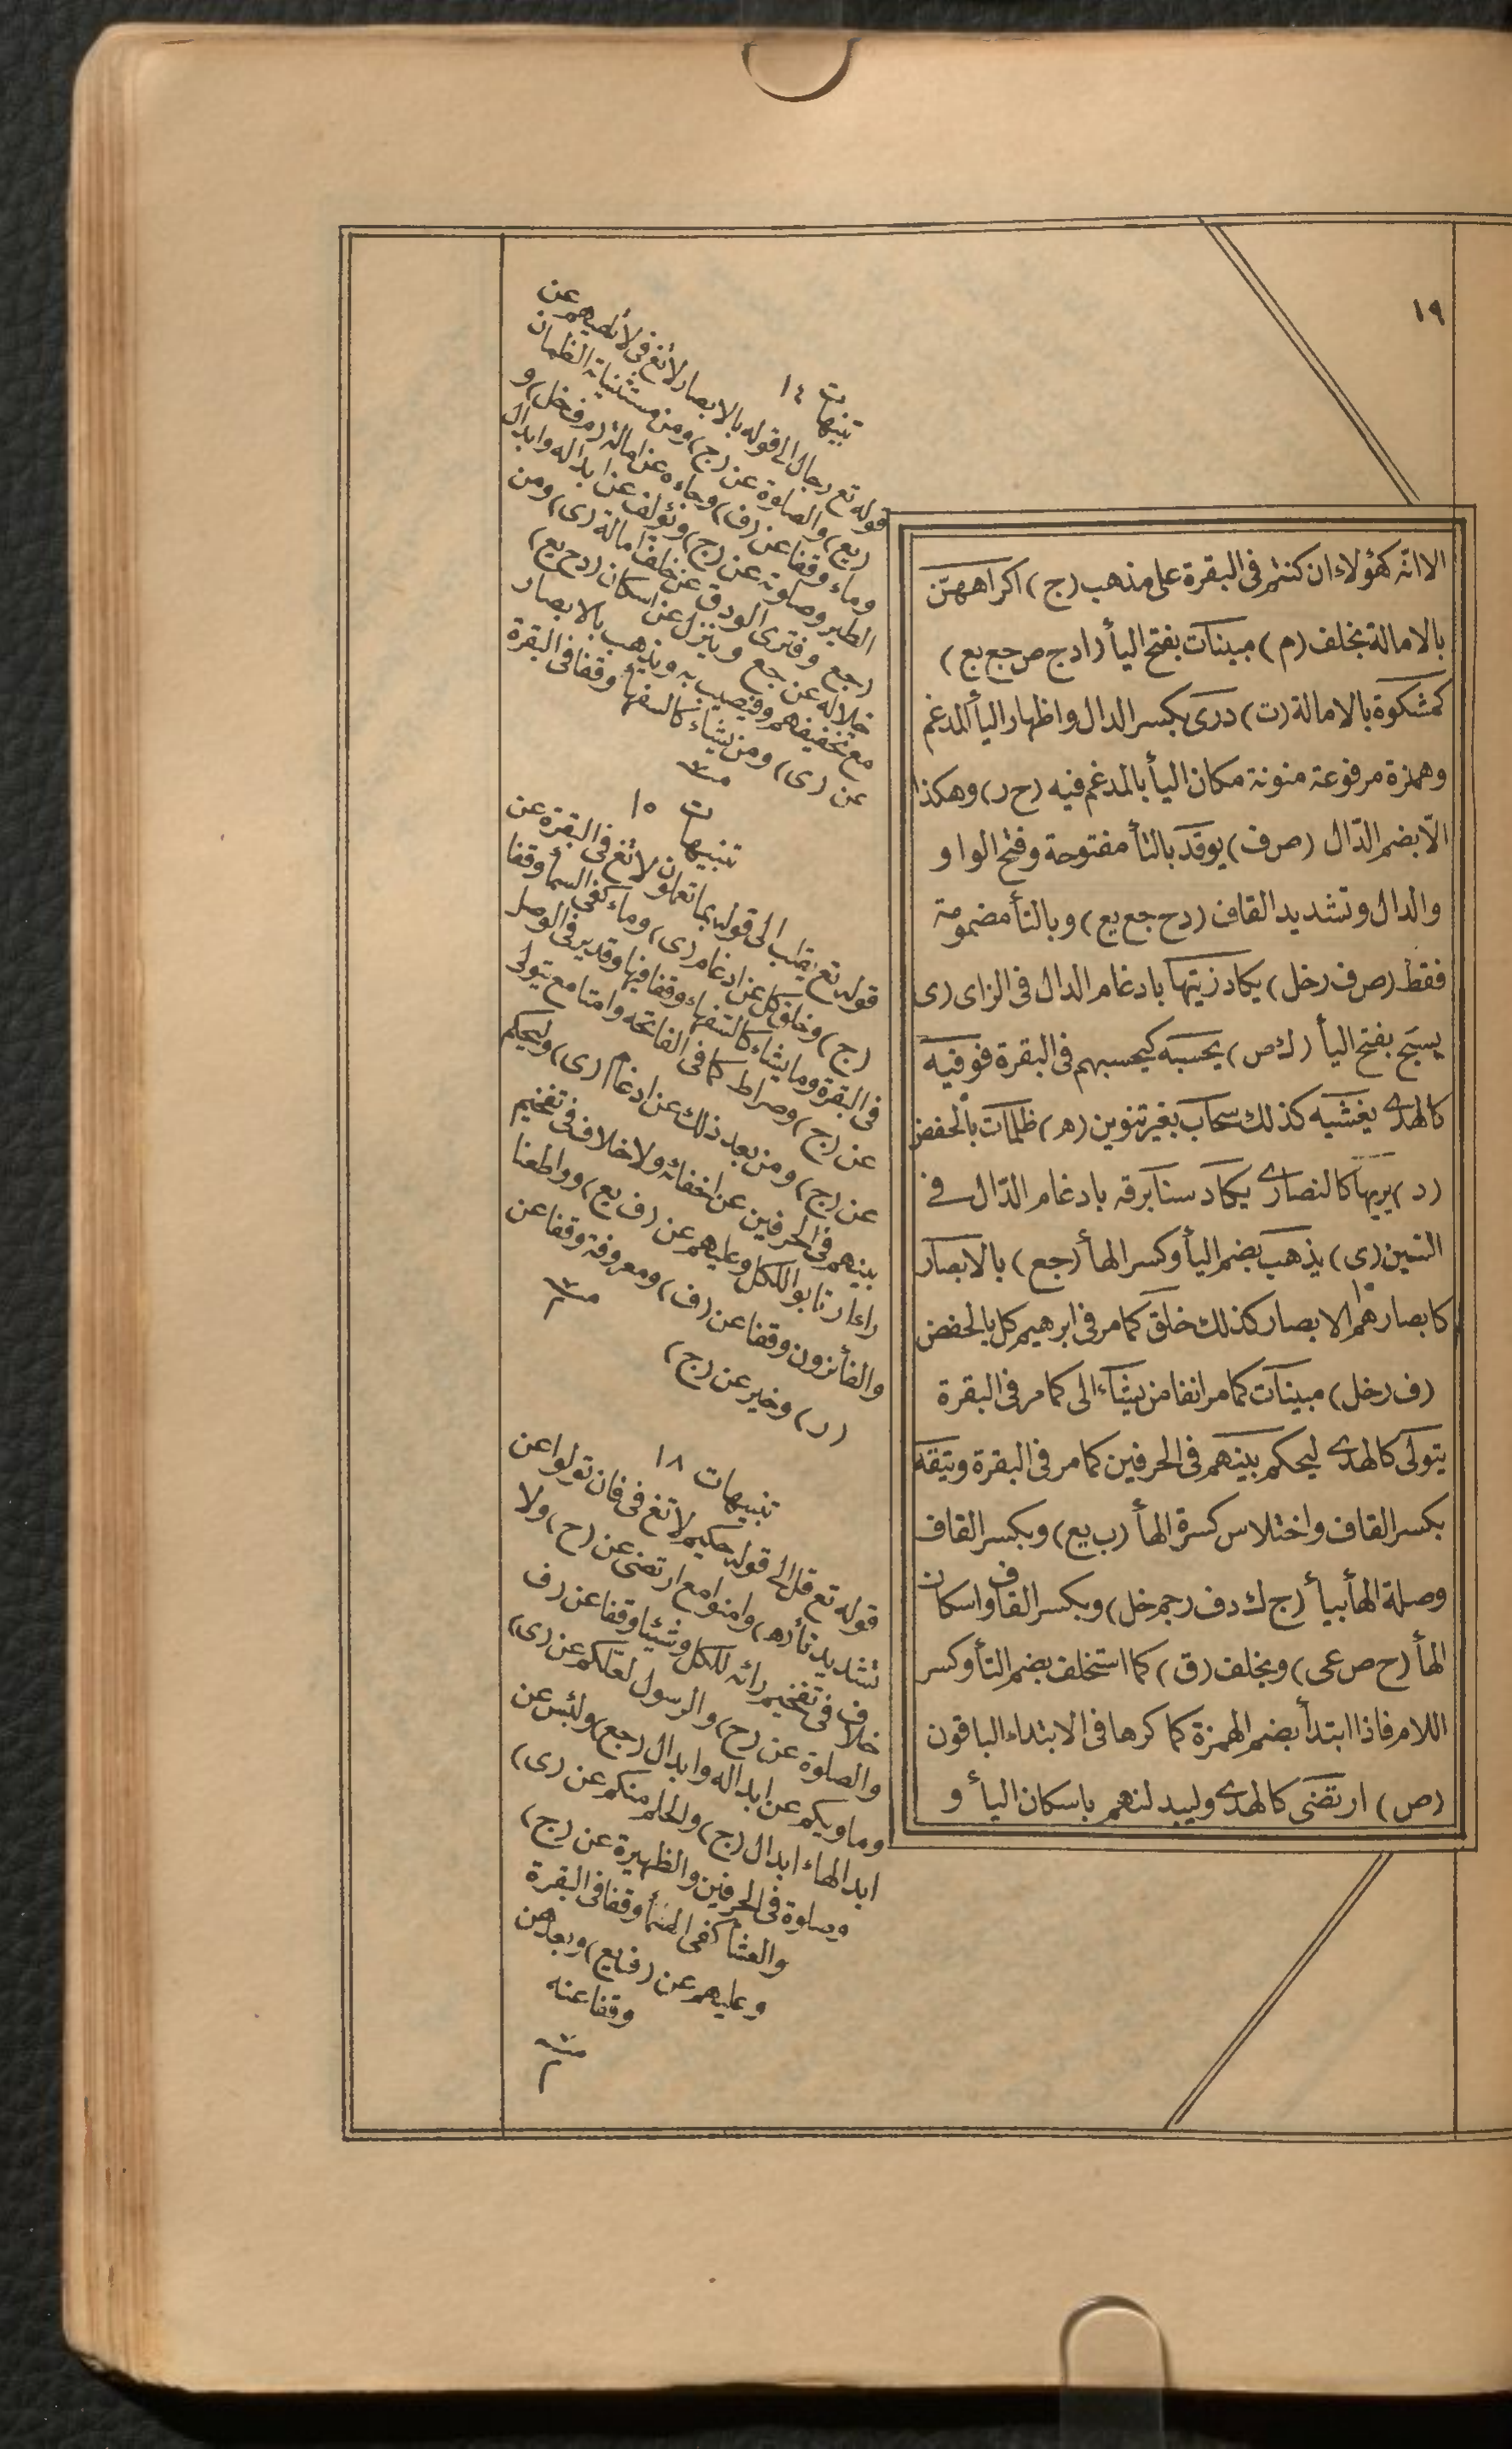 ١٩
الا انّه كهؤلاء ان كنتم فى البقرة على مذهب (ج) اكراههنّ
بالامالة بخلف (م) مبينات بفتح اليأ (ادج ص جع يع)
كمشكوة بالامالة (ت) درى بكسر الدال واظهار اليأ المدغم
وهمزة مرفوعة منونة مكان اليأ بالمدغم فيه (ح ر) وهكذا
الّا بضم الدّال (ص ف) يوقد بالتأ مفتوحة وفتح الواو و
والدال وتشديد القاف (دح جع يع) وبالتأ مضمومة
فقط (ص ف رخل) يكاد زيتها بادغام الدال فى الزاى (ى
يسبح بفتح اليأ (ك ص) يحسبه كيحسبهم فى البقرة فوفيه
كالهدى يغشيه كذلك سحاب بغير تنوين (ه) ظلمات بالخفض
(د) يريها كالنصارى يكاد سنا برقه بادغام الدّال فى
السين (ى) يذهب بضم اليأ وكسر الهأ (جع) بالابصار
كابصارهم الابصار كذلك خلق كما مر فى ابرهيم كل بالخفض
(ف رخل) مبينات كما مر انفا من يشاء الى كما مر فى البقرة
يتولى كالهدى ليحكم بينهم فى الحرفين كما مر فى البقرة ويتقه
بكسر القاف واختلاس كسرة الهأ (ب يع) وبكسر القاف
وصلة الهأ بيأ (ج ك دف رجم خل) وبكسر القاف واسكان
الهأ (ح ص عى) وبخلف (ق) كما استخلف بضم التأ وكسر
اللام فاذا ابتدأ بضم الهمزة كما كرها فى الابتداء الباقون
(ص) ارتضى كالهدى وليبدلنهم باسكان اليأ و
تنبيهات ١٤
قوله تع رجال الى قوله بالابصار لا تغ فى لا تلهيهم عن
(يع) والصلوة عن (ج) ومن مستثنياته الظمان
وماء وقفا عن (ف) وجاءه عن امالة (م ف خل) و
الطير وصلوته عن (ج) ونؤلف عن ابداله وابدال
(جع وفترى الودق عن خلف امالة (ى) ومن
خلاله عن جع وينزل عن اسكان (دح يع)
مع تخفيفهم وفيصيب به ويذهب بالابصار
عن (ى) ومن يشاء كالسفهأ وقفا فى البقرة
تنبيهات ١٥
قوله تع يقلب الى قوله بما تعملون لا تغ فى البقرة عن
(ج) وخلق كل عن ادغام (ى) وماء كفى السمأ وقفا
فى البقرة وما يشاء كالسفهاء وقفا فيها وقدير فى الوصل
عن (ج) وصراط كما فى الفاتحه وامنا مع يتولى
عن (ج) ومن بعد ذلك عن ادغام (ى) وليحكم
بينهم فى الحرفين عن اخفائه ولا خلاف فى تفخيم
راء ارتابوا للكل وعليهم عن (ف يع) وواطعنا
والفأئزون وقفا عن (ف) ومعروفة وقفا عن
(ر) وخير عن (ج)
تنبيهات ١٨
قوله تع قل الى قوله حكيم لا تغ فى فان تولوا عن
تشديد تأ (ه) وامنوا مع ارتضى عن (ح) ولا
خلاف فى تفخيم رائه للكل وشيئا وقفا عن (ف
والصلوة عن (ج) والرسول لعلكم عن (ى)
وماويكم عن ابداله وابدال (جع) ولبئس عن
ابدالهاء ابدال (ج) والحلم منكم عن (ى)
وصلوة فى الحرفين والظهيرة عن (ج)
والعشأ كفى السمأ وقفا فى البقرة
وعليهم عن (ف يع) وبعدهن
وقفا عنه